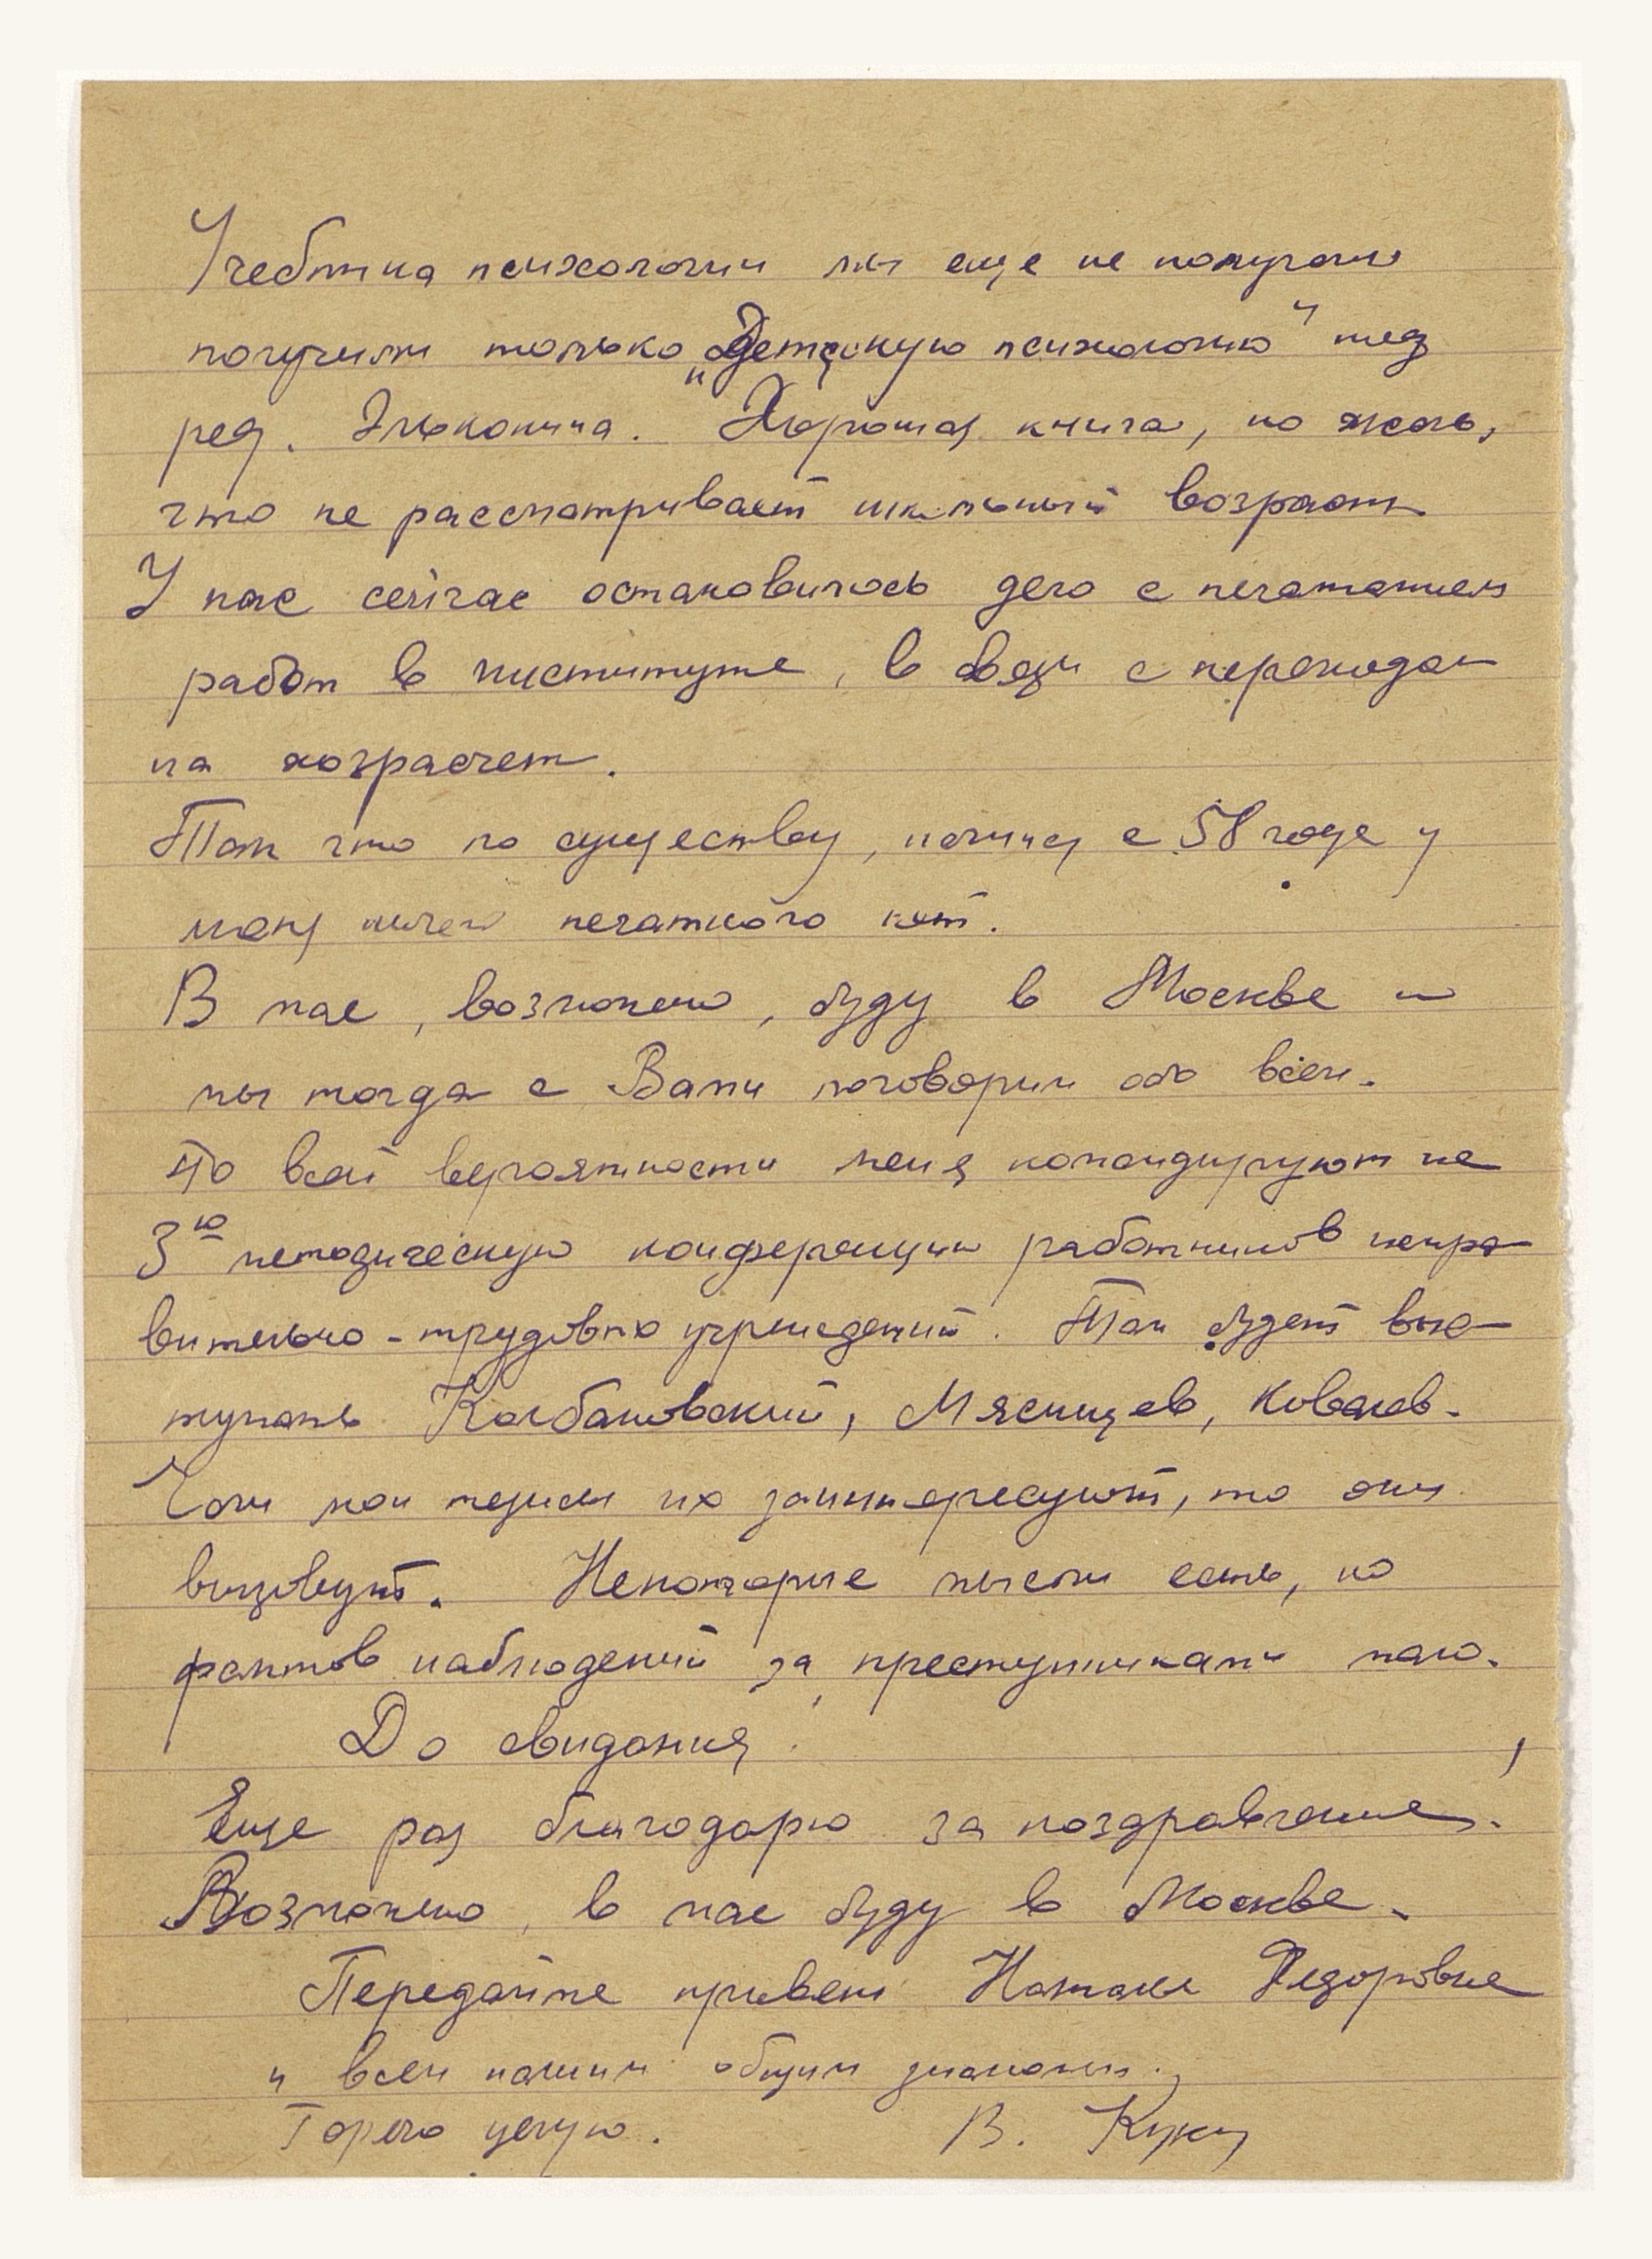 Учебника психологии мы еще не получали
получили только „Детскую психологию" под
ред. Эльконина. Хорошая книга, но жаль,
что не рассматривает школьный возраст.
У нас сейчас остановилось дело с печатанием
работ в институте, в связи с переходом
на хозрасчет.
Так что по существу, начиная с 58 года у
меня ничего печатного нет.
В мае, возможно, буду в Москве и
мы тогда с Вами поговорим обо всем.
По всей вероятности меня командируют на
3ю методическую конференцию работников испра
вительно-трудовых учреждений. Там будет выс-
тупать Колбановский, Мясищев, Ковалев.
Если мои тезисы их заинтересуют, то они
вызовут. Некоторые мысли есть, но
фактов наблюдений за преступниками мало.
До свидания!
Еще раз благодарю за поздравление.
Возможно, в мае буду в Москве.
Передайте привет Наталье Федоровне
и всем нашим общим знакомым.
Горячо целую. В.